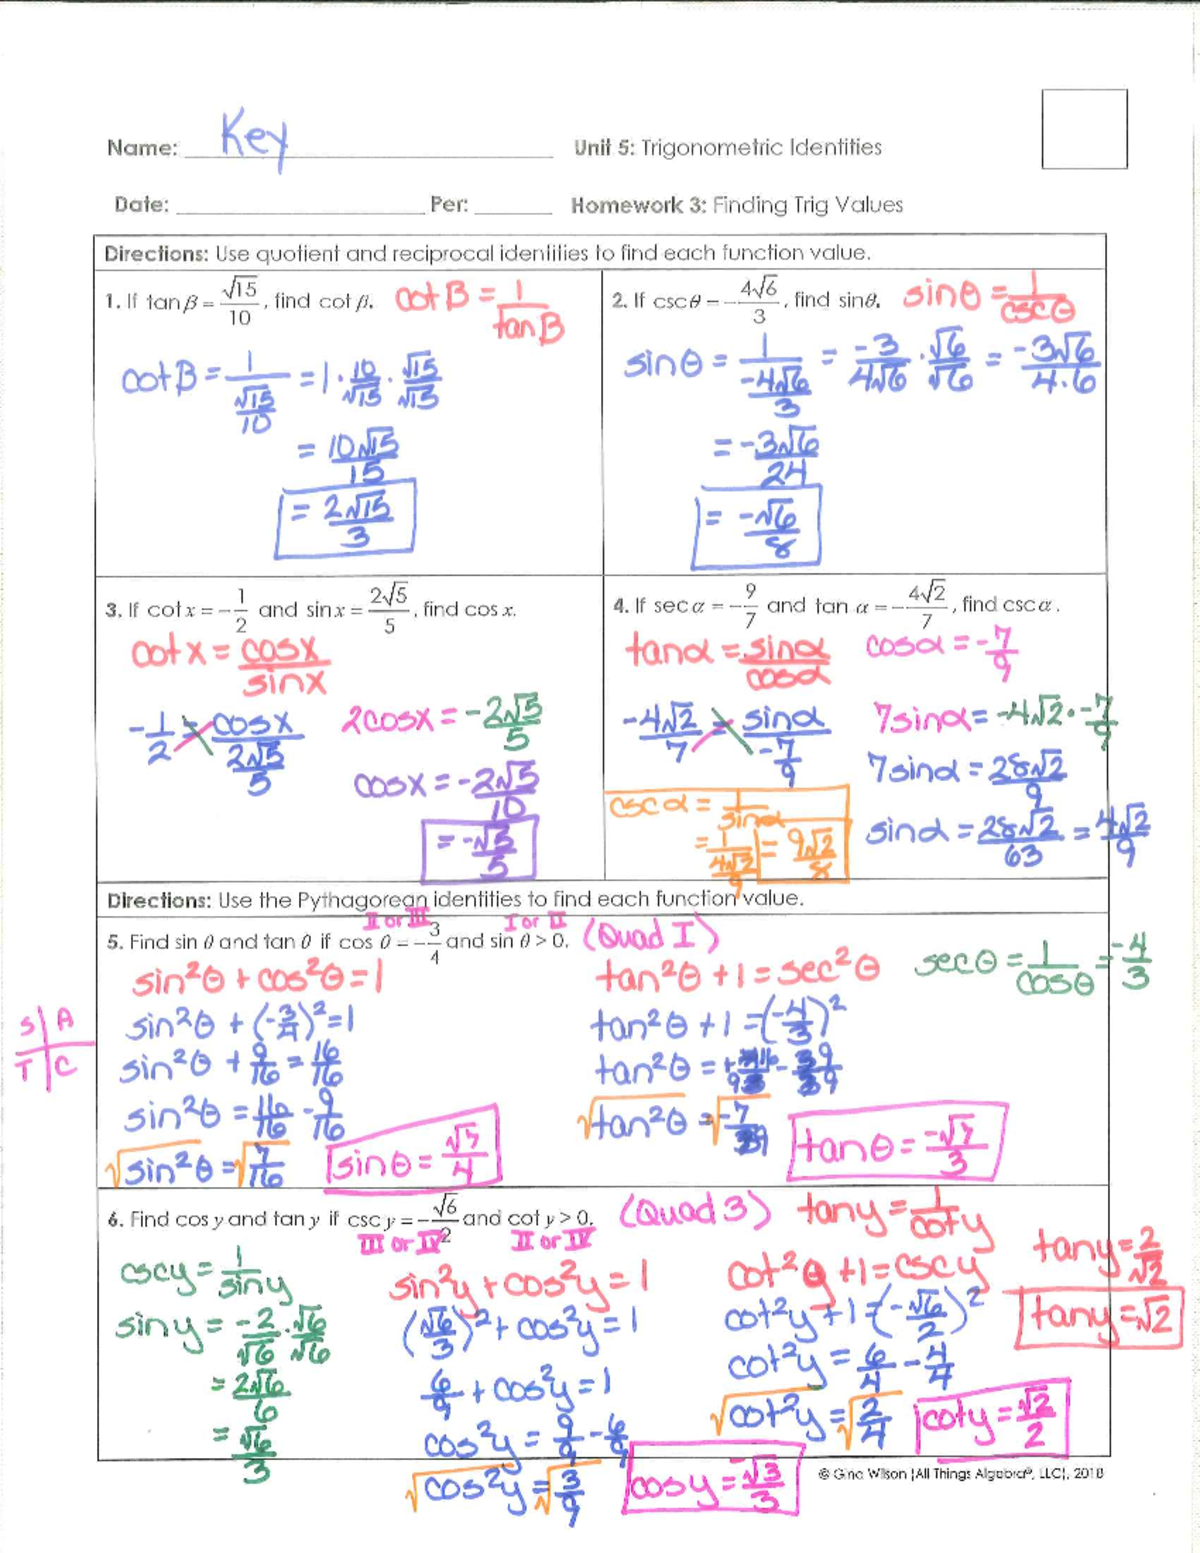 Name: Key Unit 5: Trigonometric Identities
Date: Per: Homework 3: Finding Trig Values
Directions: Use quotient and reciprocal identities to find each function value.
1. If tan β = √15/10, find cot β. cot β = 1/tan β
cot β = 1/(√15/10) = 1 · 10/√15 · √15/√15
= 10√15/15
= 2√15/3
2. If csc θ = -4√6/3, find sin θ. sin θ = 1/csc θ
sin θ = 1/(-4√6/3) = -3/4√6 · √6/√6 = -3√6/4·6
= -3√6/24
= -√6/8
3. If cot x = -1/2 and sin x = 2√5/5, find cos x.
cot x = cos x/sin x
-1/2 = cos x/(2√5/5)
2cos x = -2√5/5
cos x = -2√5/10
= -√5/5
4. If sec α = -9/7 and tan α = -4√2/7, find csc α.
tan α = sin α/cos α cos α = -7/9
-4√2/7 = sin α/(-7/9)
7sin α = -4√2 · -7/9
7sin α = 28√2/9
sin α = 28√2/63 = 4√2/9
csc α = 1/sin α
= 1/(4√2/9) = 9√2/8
Directions: Use the Pythagorean identities to find each function value.
II or III I or II
5. Find sin θ and tan θ if cos θ = -3/4 and sin θ > 0. (Quad I)
S A
T C
sin²θ + cos²θ = 1
sin²θ + (-3/4)² = 1
sin²θ + 9/16 = 16/16
sin²θ = 16/16 - 9/16
√sin²θ = √7/16
sin θ = √7/4
tan²θ + 1 = sec²θ
sec θ = 1/cos θ = -4/3
tan²θ + 1 = (-4/3)²
tan²θ =
√tan²θ =
tan θ = -√7/3
6. Find cos y and tan y if csc y = -√6/2 and cot y > 0. (Quad 3)
III or IV II or IV
csc y = 1/sin y
sin y = -2/√6 · √6/√6
= 2√6/6
= √6/3
sin²y + cos²y = 1
(√6/3)² + cos²y = 1
6/9 + cos²y = 1
cos²y = 9/9 - 6/9
√cos²y = √3/9
cos y = -√3/3
tan y = 1/cot y
cot²y + 1 = csc y
cot²y + 1 = (-√6/2)²
cot²y = 6/4 - 4/4
√cot²y = √2/4
cot y = √2/2
tan y = 2/√2
tan y = √2
© Gina Wilson (All Things Algebra®, LLC), 2018